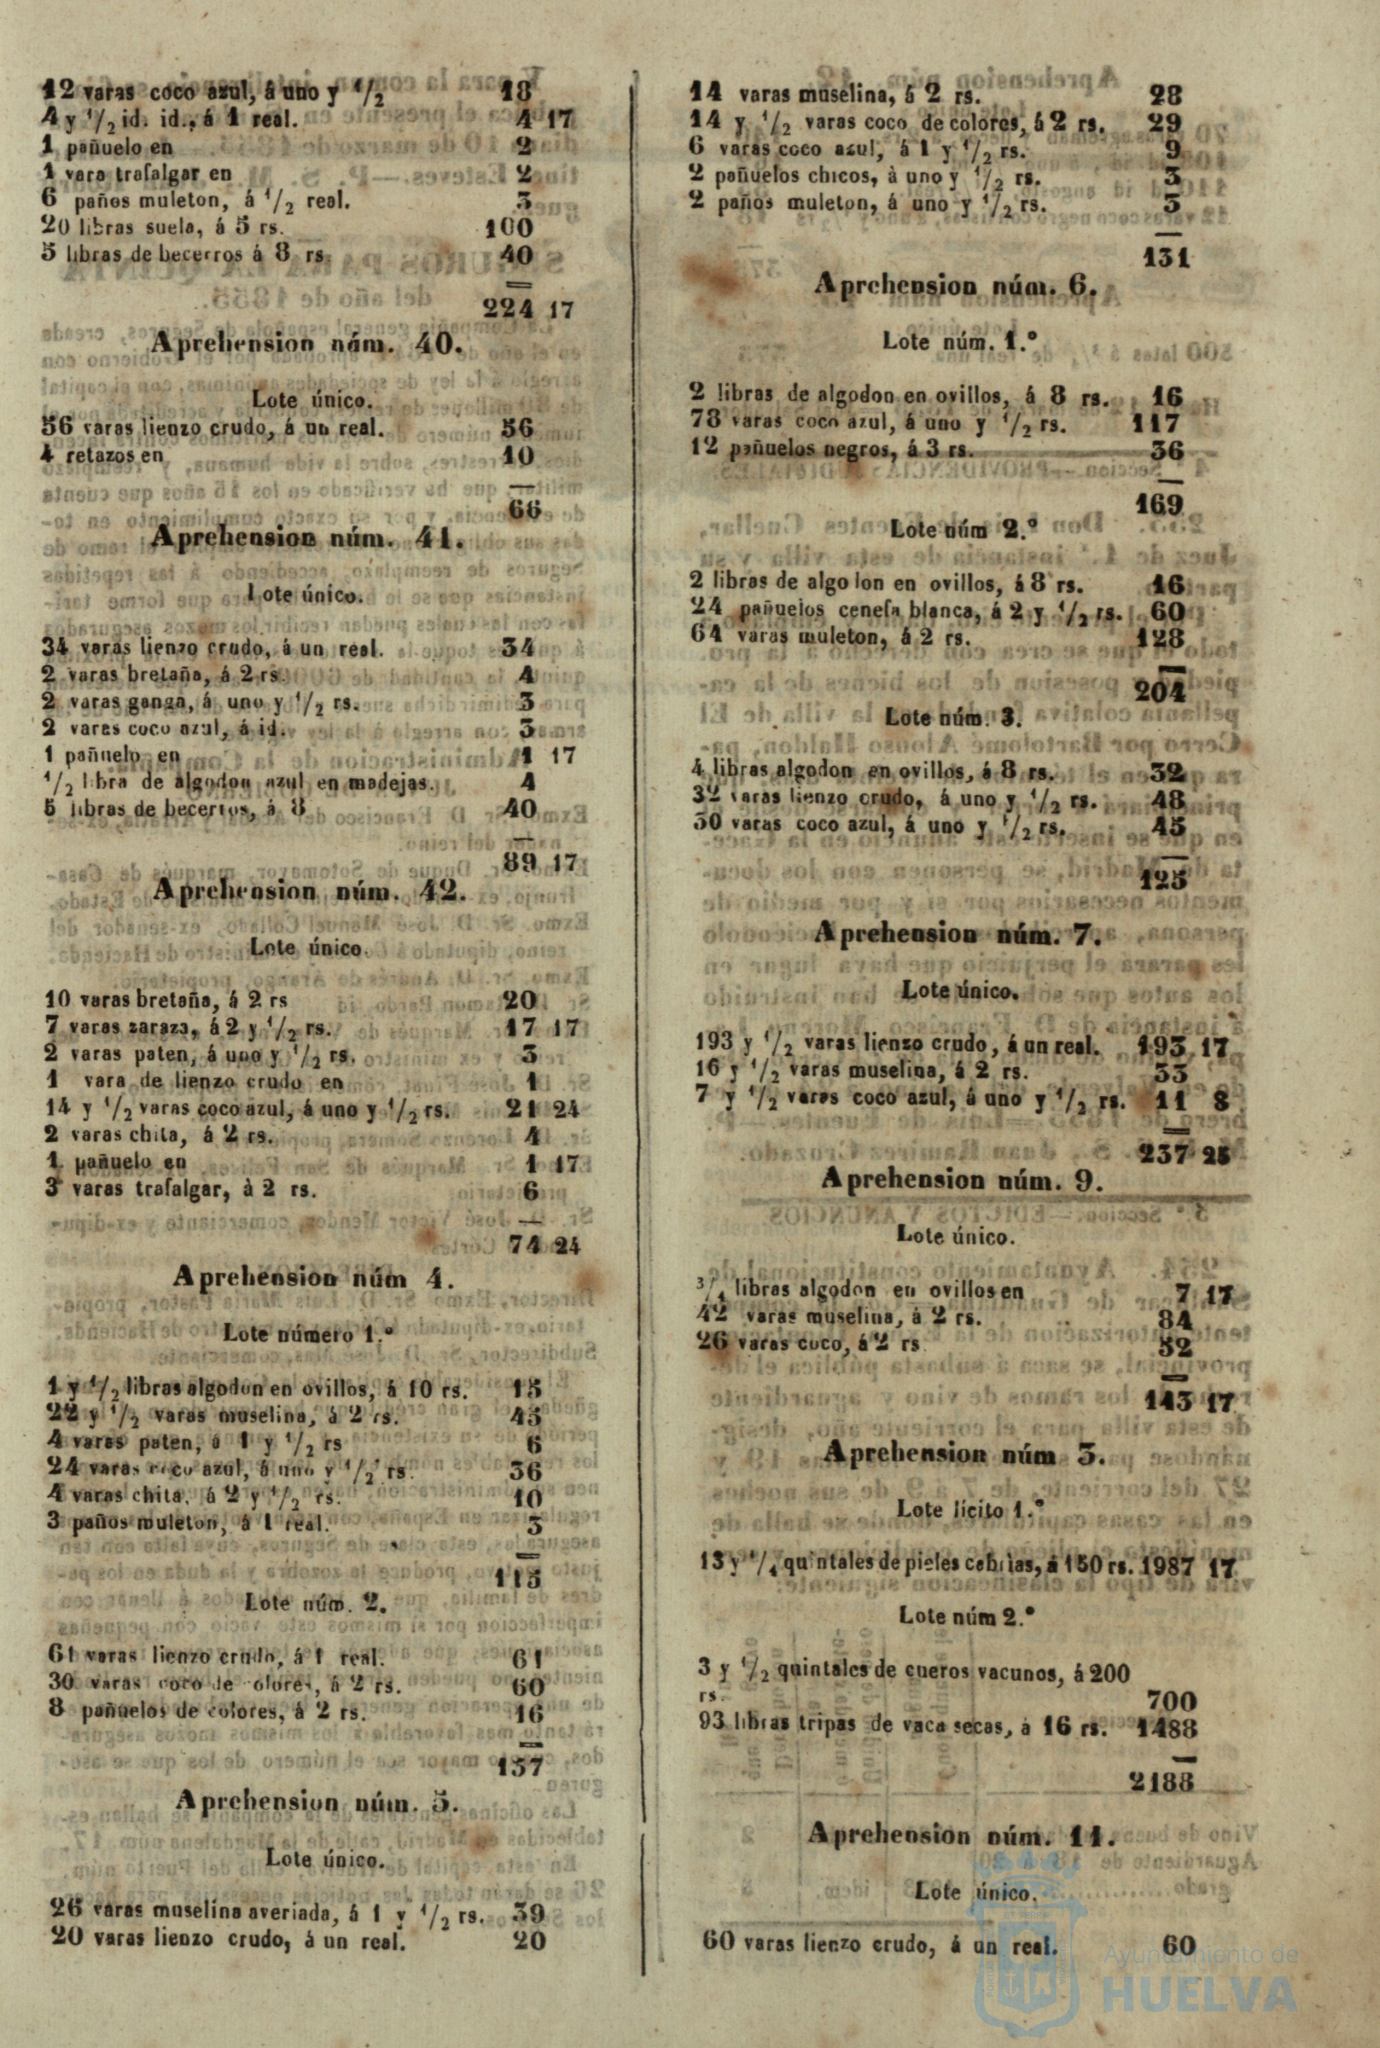 12 varas coco azul, á uno y 1/2 18
4 y 1/2 id. id., á 1 real. 4 17
1 pañuelo en 2
1 vara trafalgar en 2
6 paños muleton, á 1/2 real. 3
20 libras suela, á 5 rs. 100
5 libras de becerros á 8 rs. 40
224 17
Aprehension núm. 40.
Lote único.
56 varas lienzo crudo, á un real. 56
4 retazos en 10
66
Aprehension núm. 41.
Lote único.
34 varas lienzo crudo, á un real. 34
2 varas bretaña, á 2 rs. 4
2 varas ganga, á uno y 1/2 rs. 3
2 varas coco azul, á id. 3
1 pañuelo en 1 17
1/2 libra de algodon azul en madejas. 4
5 libras de becerros, á 8 40
89 17
Aprehension núm. 42.
Lote único.
10 varas bretaña, á 2 rs 20
7 varas zaraza, á 2 y 1/2 rs. 17 17
2 varas paten, á uno y 1/2 rs. 3
1 vara de lienzo crudo en 1
14 y 1/2 varas coco azul, á uno y 1/2 rs. 21 24
2 varas chita, á 2 rs. 4
1 pañuelo en 1 17
3 varas trafalgar, à 2 rs. 6
74 24
Aprehension núm 4.
Lote número 1.º
1 y 1/2 libras algodon en ovillos, á 10 rs. 15
22 y 1/2 varas muselina, á 2 rs. 45
4 varas paten, á 1 y 1/2 rs 6
24 varas coco azul, á uno y 1/2 rs. 36
4 varas chita, á 2 y 1/2 rs. 10
3 paños muleton, á 1 real. 3
115
Lote núm. 2.
61 varas lienzo crudo, á 1 real. 61
30 varas coco de colores, á 2 rs. 60
8 pañuelos de colores, á 2 rs. 16
137
Aprehension núm. 5.
Lote único.
26 varas muselina averiada, á 1 y 1/2 rs. 39
20 varas lienzo crudo, á un real. 20
14 varas muselina, á 2 rs. 28
14 y 1/2 varas coco de colores, á 2 rs. 29
6 varas coco azul, á 1 y 1/2 rs. 9
2 pañuelos chicos, à uno y 1/2 rs. 3
2 paños muleton, á uno y 1/2 rs. 3
131
Aprehension núm. 6.
Lote núm. 1.º
2 libras de algodon en ovillos, á 8 rs. 16
78 varas coco azul, á uno y 1/2 rs. 117
12 pañuelos negros, á 3 rs. 36
169
Lote núm 2.º
2 libras de algodon en ovillos, á 8 rs. 16
24 pañuelos cenefa blanca, á 2 y 1/2 rs. 60
64 varas muleton, á 2 rs. 128
204
Lote núm. 3.
4 libras algodon en ovillos, á 8 rs. 32
32 varas lienzo crudo, á uno y 1/2 rs. 48
30 varas coco azul, á uno y 1/2 rs. 45
125
Aprehension núm. 7.
Lote único.
193 y 1/2 varas lienzo crudo, á un real. 193 17
16 y 1/2 varas muselina, á 2 rs. 33
7 y 1/2 varas coco azul, á uno y 1/2 rs. 11 8
237 25
Aprehension núm. 9.
Lote único.
3/4 libras algodon en ovillos en 7 17
42 varas muselina, á 2 rs. 84
26 varas coco, á 2 rs 52
143 17
Aprehension núm 3.
Lote licito 1.º
13 y 1/4 quintales de pieles cabrias, á 150 rs. 1987 17
Lote núm 2.º
3 y 1/2 quintales de cueros vacunos, á 200
rs. 700
93 libras tripas de vaca secas, á 16 rs. 1488
2188
Aprehension núm. 11.
Lote único.
60 varas lienzo crudo, á un real. 60
Ayuntamiento de
HUELVA